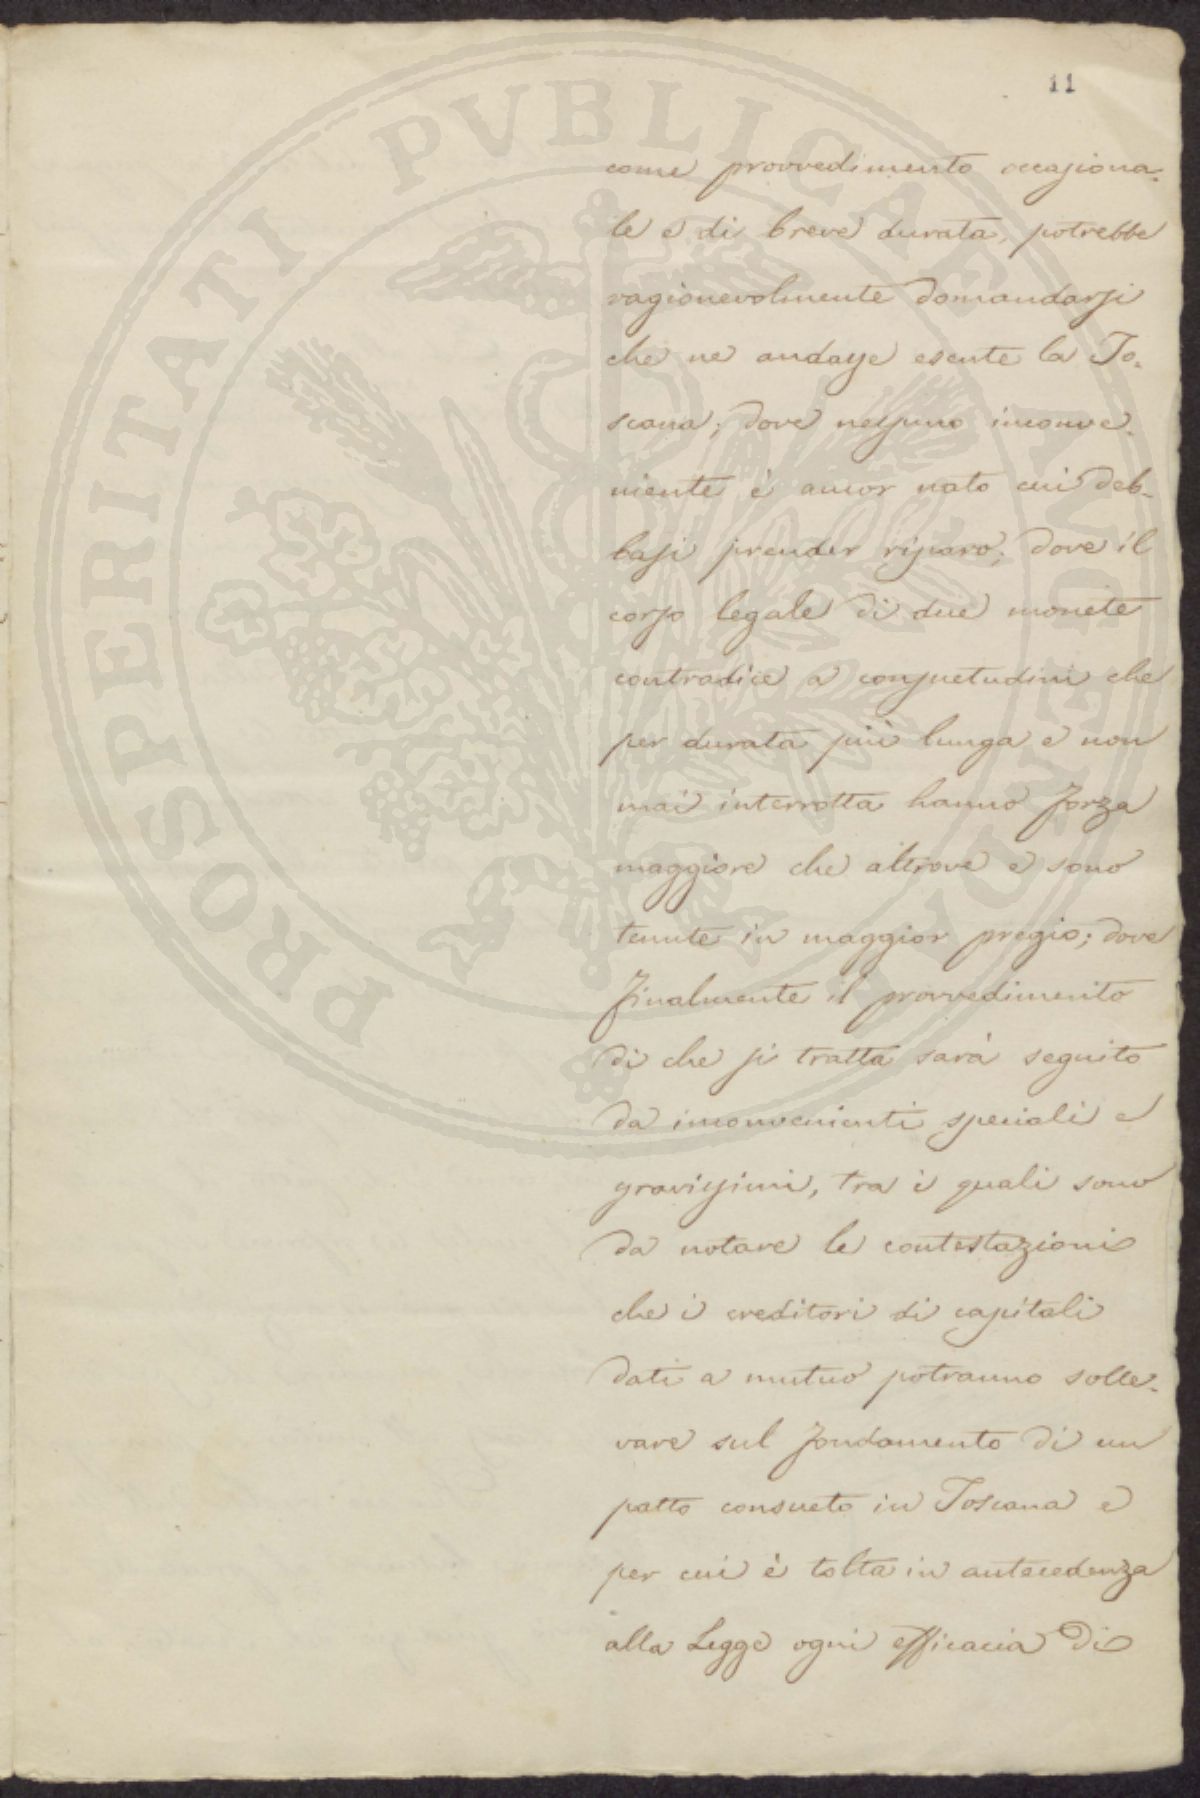 PROSPERITATI PVBLICAE AVGENDAE
11
come provvedimento occasiona-
le e di breve durata, potrebbe
ragionevolmente domandarsi
che ne andasse esente la To-
scana; dove nessuno inconve-
niente è ancor nato cui deb-
basi prender riparo; dove il
corso legale di due monete
contradice a consuetudini che
per durata più lunga e non
mai interrotta hanno forza
maggiore che altrove e sono
tenute in maggior pregio; dove
finalmente il provvedimento
di che si tratta sarà seguito
da inconvenienti speciali e
gravissimi, tra i quali sono
da notare le contestazioni
che i creditori di capitali
dati a mutuo potranno solle-
vare sul fondamento di un
patto consueto in Toscana e
per cui è tolta in antecedenza
alla Legge ogni efficacia di